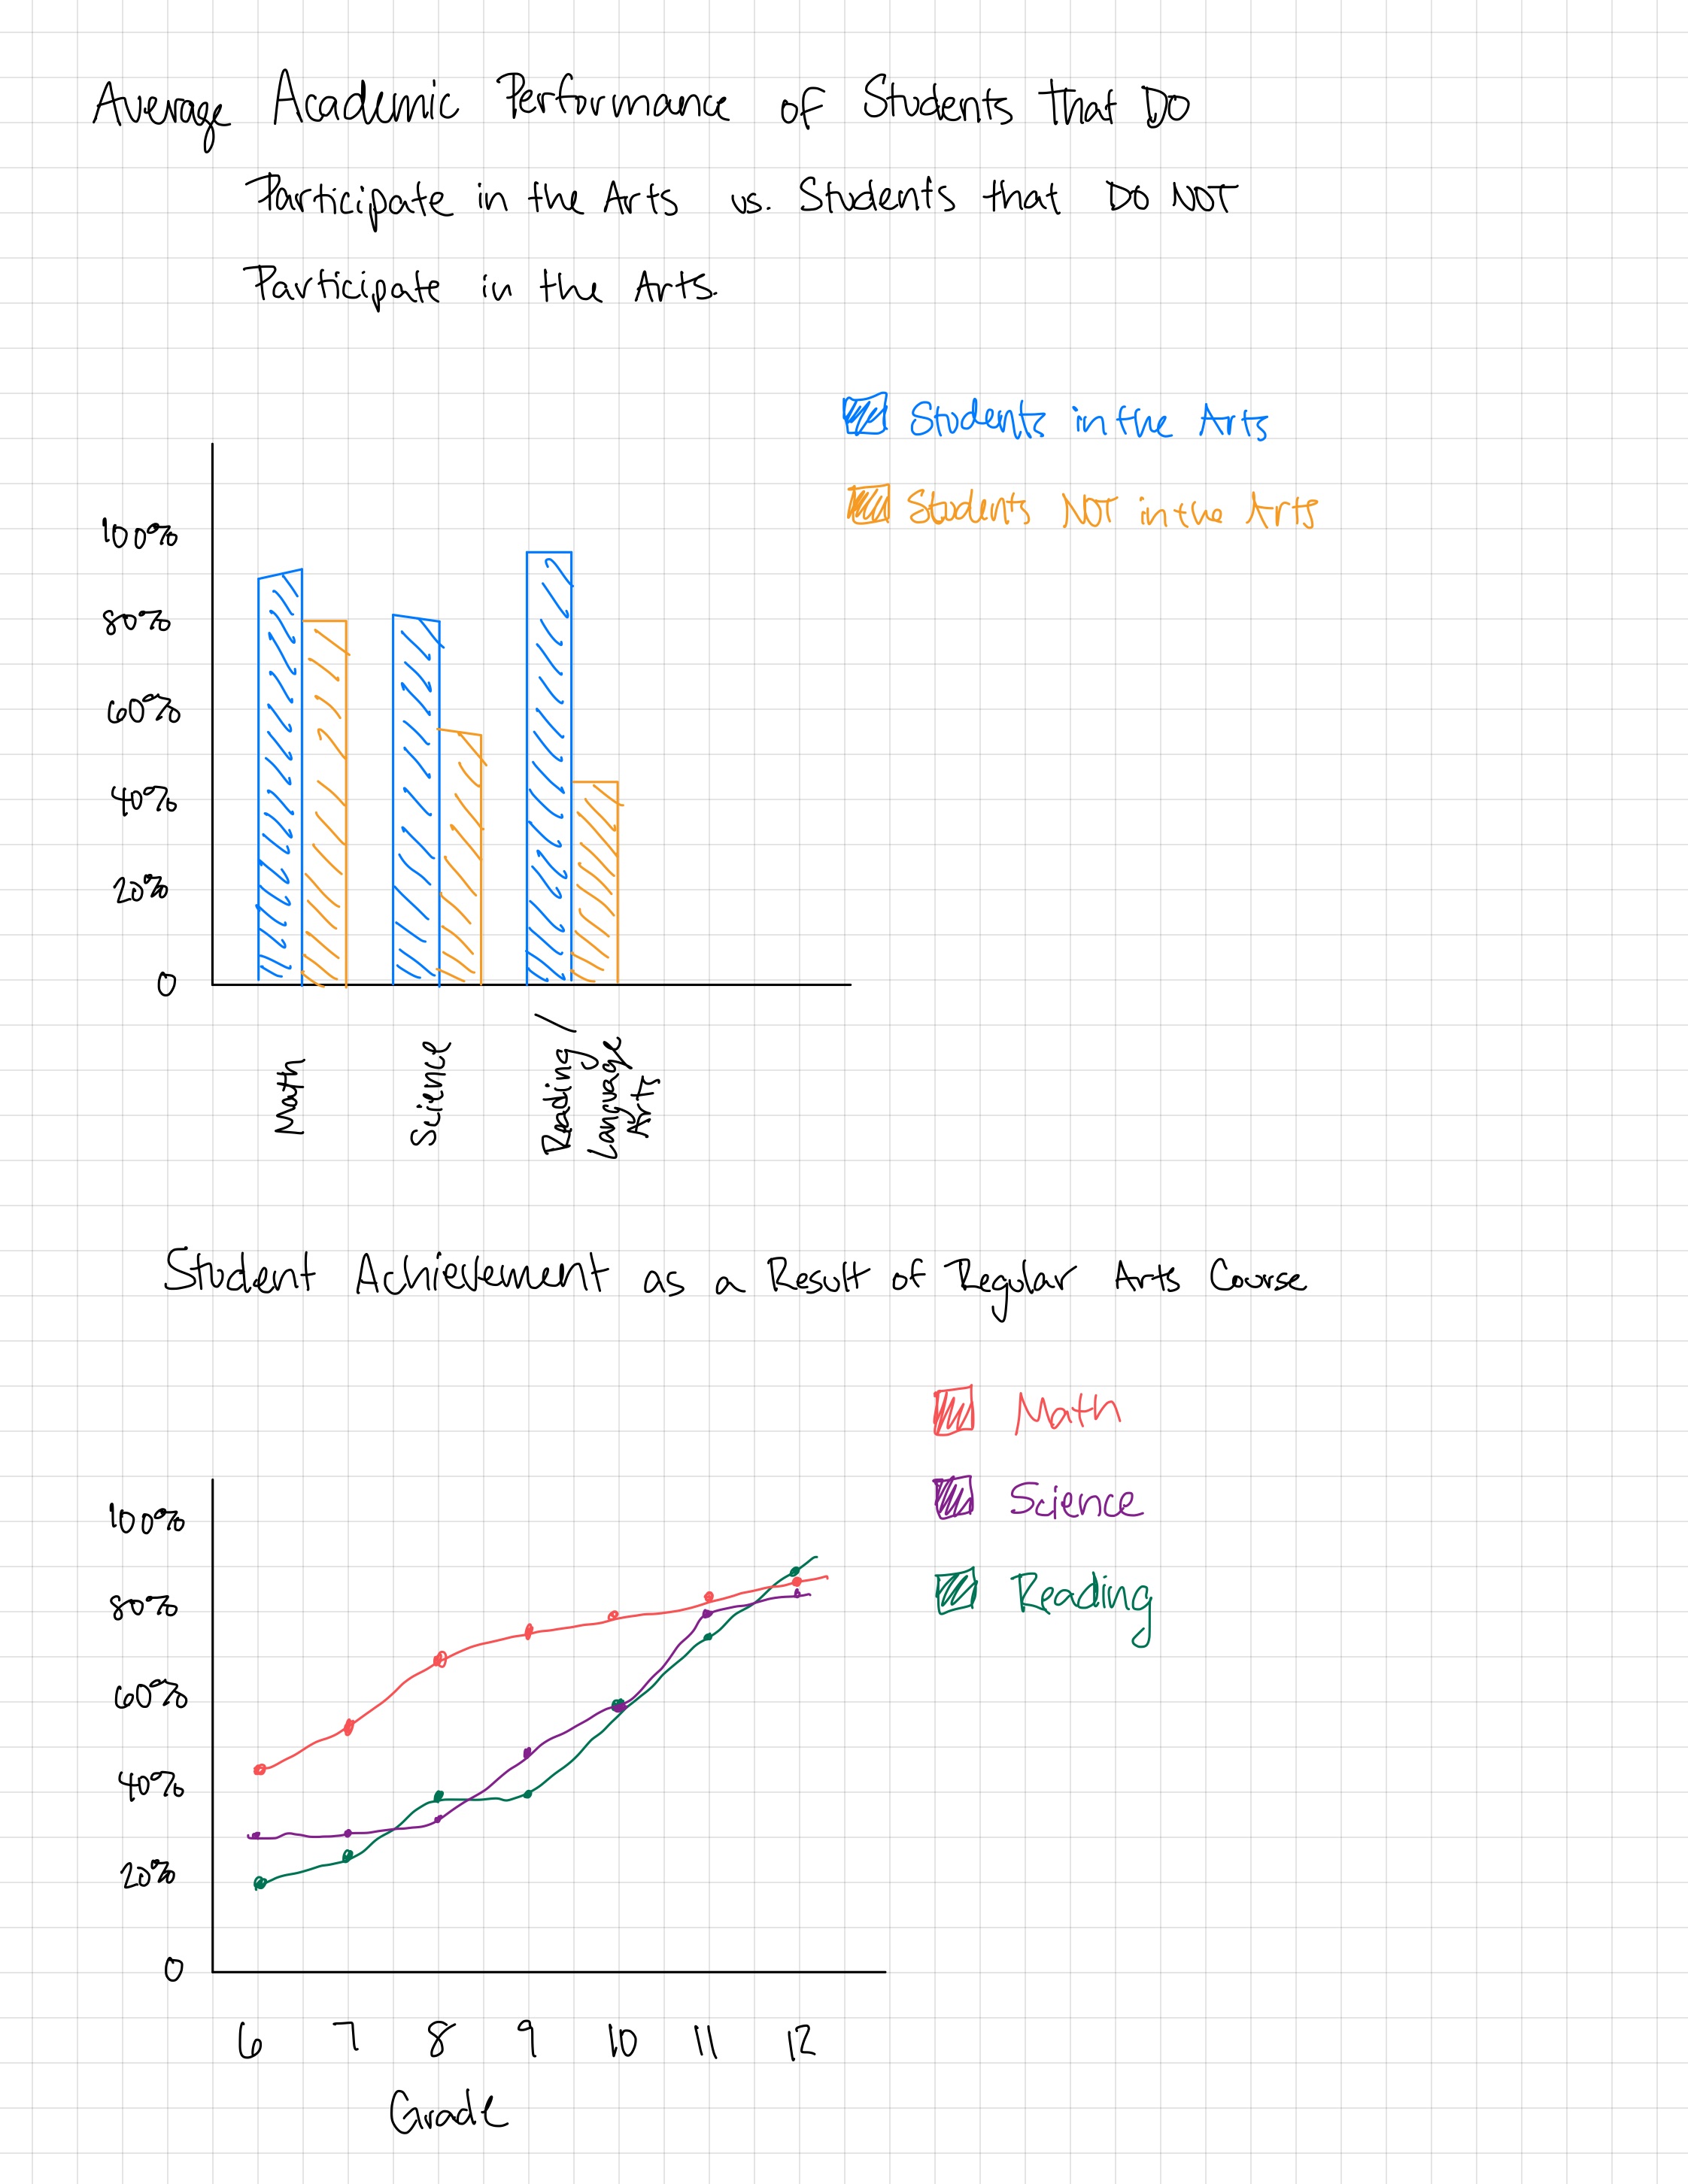 Average Academic Performance of Students that DO
Participate in the Arts vs. Students that DO NOT
Participate in the Arts.
Students in the Arts
Students NOT in the Arts
100%
80%
60%
40%
20%
0
Math
Science
Reading /
Language
Arts
Student Achievement as a Result of Regular Arts Course
Math
Science
Reading
100%
80%
60%
40%
20%
0
6 7 8 9 10 11 12
Grade